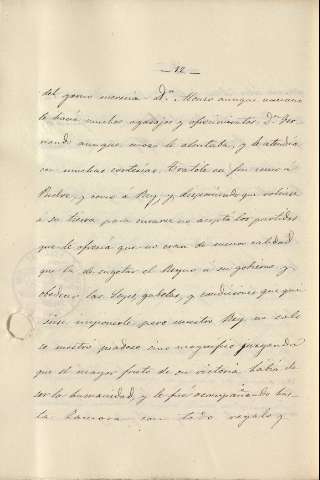 — 12 —
del gozne merecia. d.n Alonso aunque anciano
le hacia muchos agasajos y ofrecimientos. D.n Fer-
nando aunque mozo le alentaba, y le atendia
con muchas cortesias. Tratole en fin como á
Padre, y como á Rey y, disponiendo que volviese
á su tierra para curarse no aceptó los partidos
que le ofrecia que no eran de menor calidad
que la de sugetar el Reyno á su gobierno y
obedecer las Leyes, gabelas, y condiciones que qui
siese imponerle pero nuestro Rey no solo
se mostró piadoso sino magnifico juzgando
que el mayor fruto de su victoria habia de
ser la humanidad, y le fué acompañando has-
ta Zamora con todo regalo y